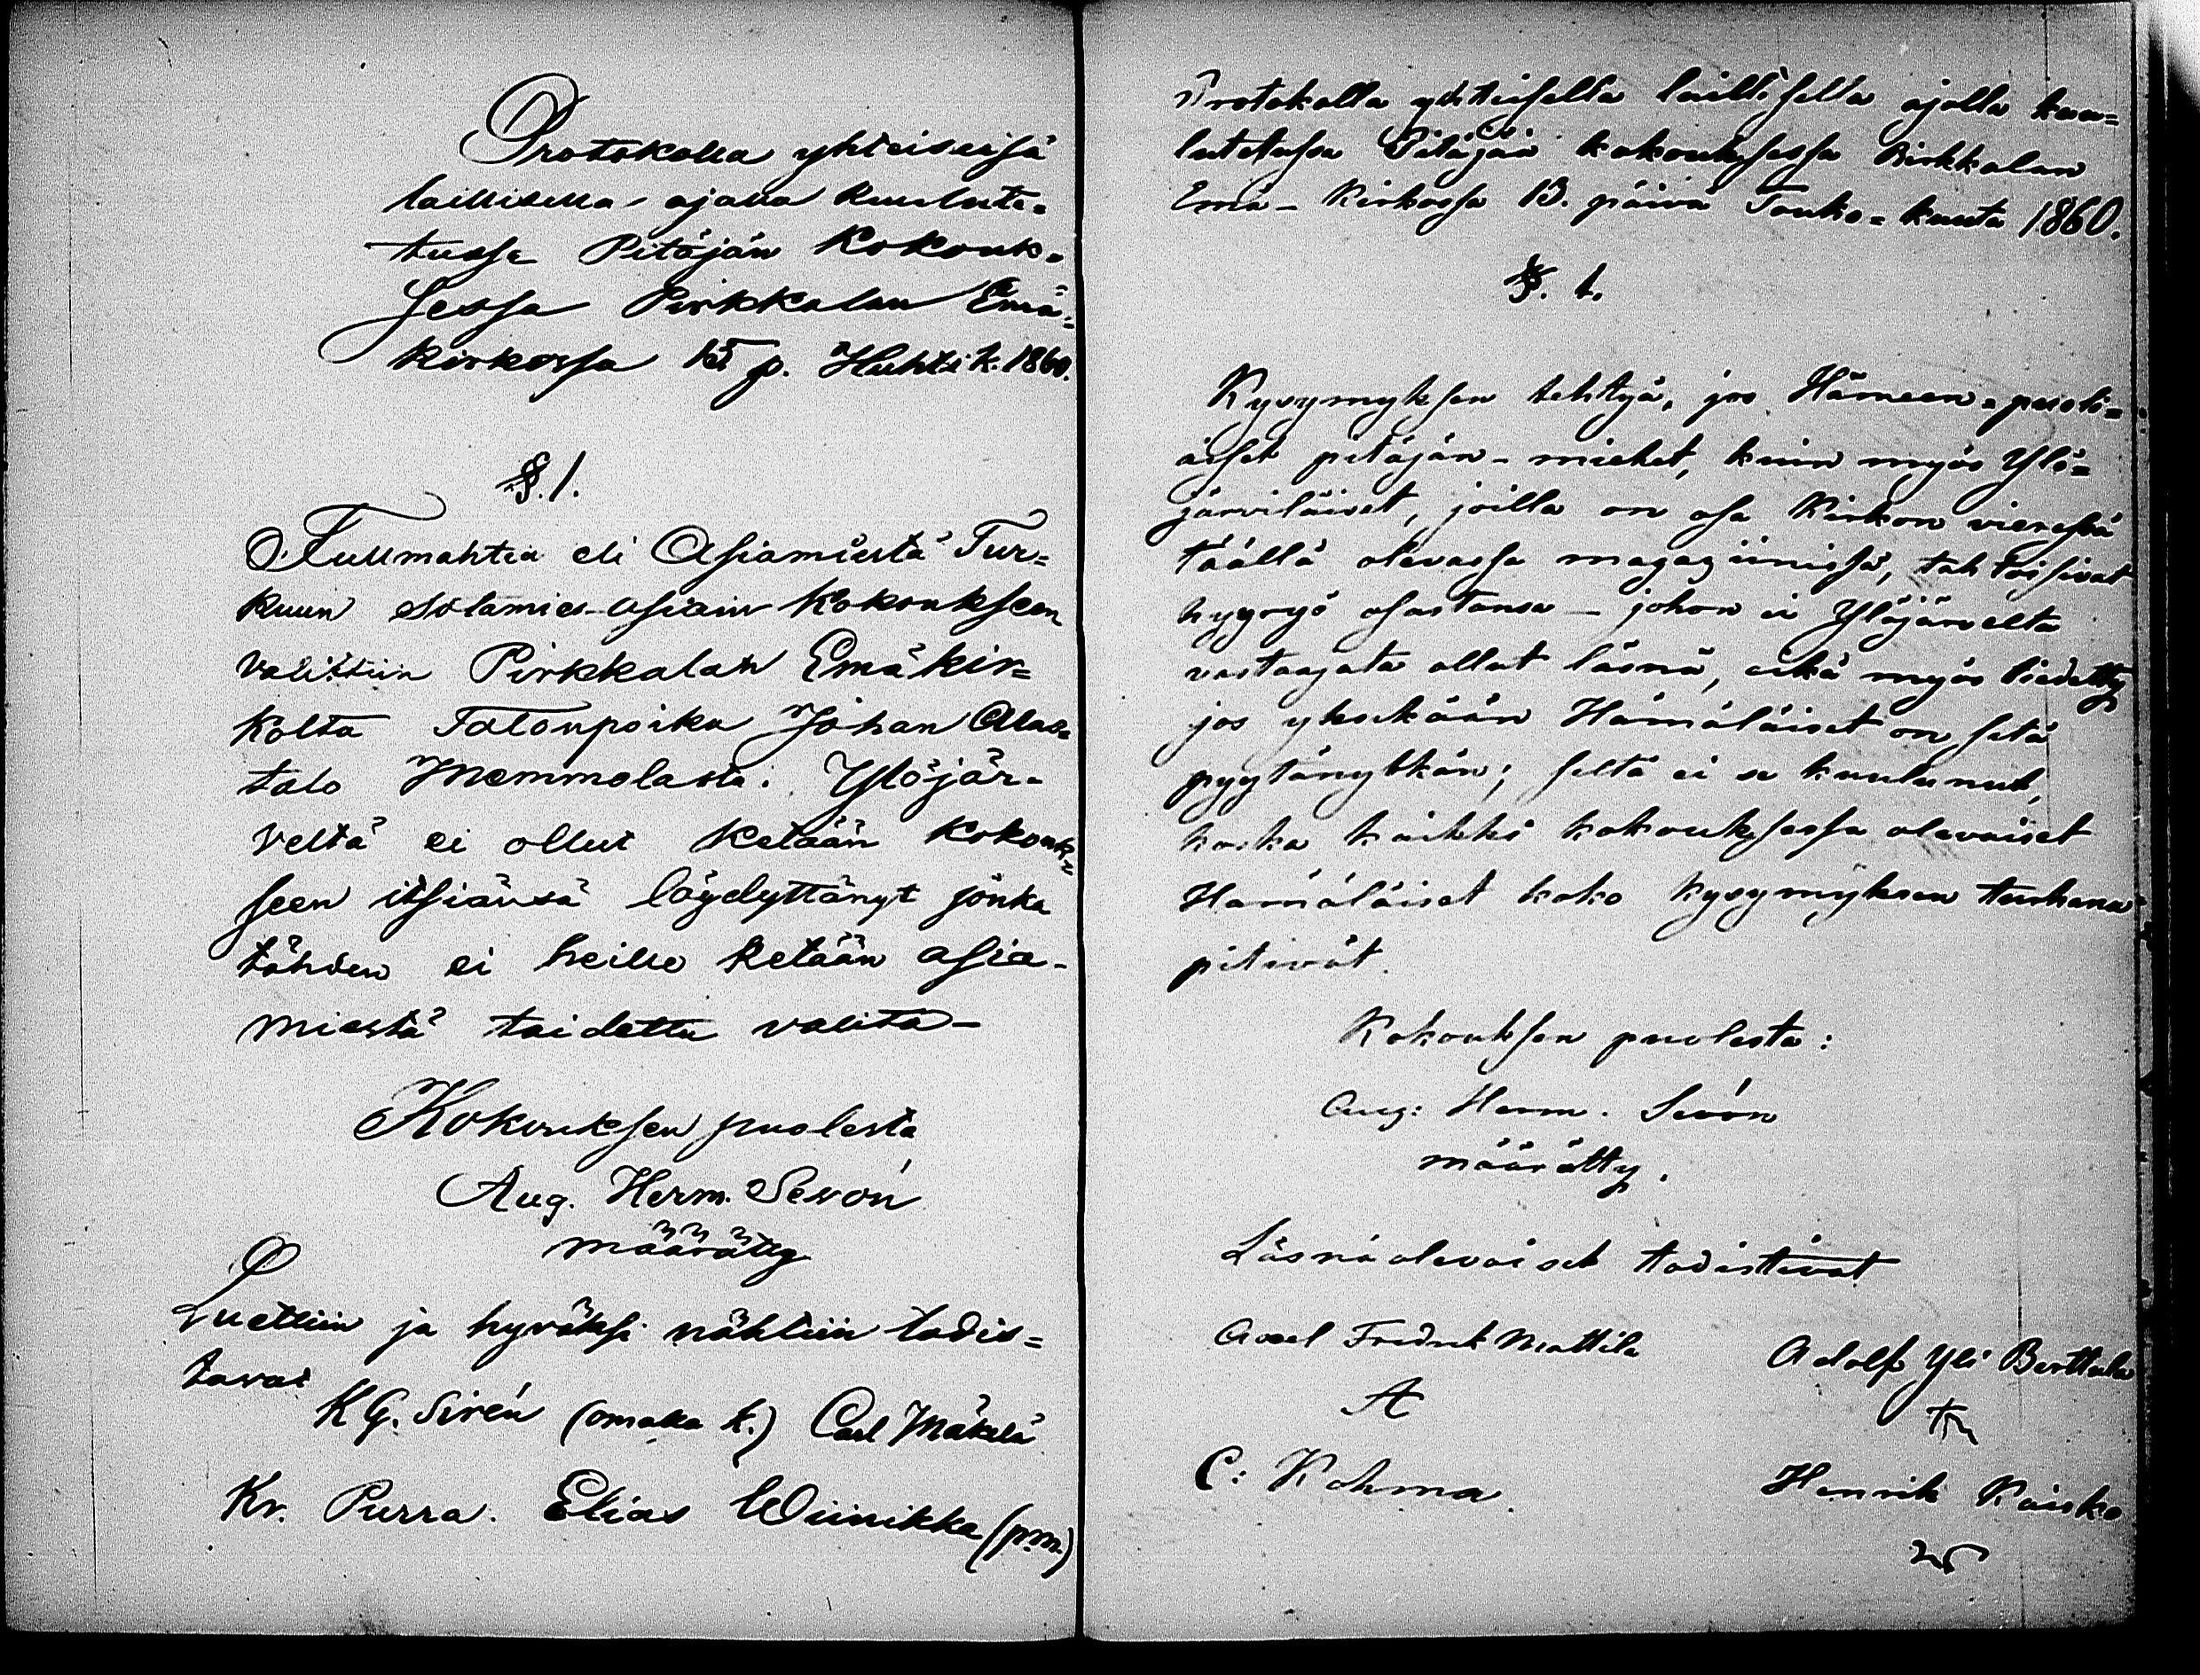 Protokolla yhteisessä
laillisella ajalla kuulute=
tussa Pitäjän Kokouk=
sessa Pirkkalan Emä=
kirkossa 15 p. Huhtik. 1860.
§. 1.
Fullmahtia eli Asiamiestä Tur=
kuun Sotamies-asiain Kokoukseen
valittiin Pirkkalan Emäkir=
kolta Talonpoika Johan Alas=
talo Memmolasta. Ylöjär=
veltä ei ollut ketään Kokouk=
seen itsiänsä löydyttänyt jonka
tähden ei heille ketään asia-
miestä taidettu valita-
Kokouksen puolesta
Aug. Herm. Sevón
määrätty
Luettiin ja hyväksi nähtiin todis=
tavat
K G. Sirén (omalla k.) Carl Mäkelä
Kr. Purra. Elias Wiinikka (p.m.)
Protokolla yhteisella laillisella ajalla kuu=
lutetussa Pitäjän kokouksessa Birkkalan
Emä-Kirkossa 13. päivä Touko=kuuta 1860.
§. 1.
Kysymyksen tehtyä, jos Hämeen=puoli=
aiset pitäjän-miehet, kuin myös Ylö=
järviläiset, joilla on osa Kirkon vieressä
täällä olevassa magaziinissa, tahtoisivat
hyyryö osastansa – johon ei Ylöjärveltä
vastaajata ollut läsnä, eikä myös tiedetty
jos yksikään Hämäläiset on sitä
pyytänytkän; siltä ei se kuulunut,
koska kaikki kokouksessa olevaiset
Hämäläiset koko kysymyksen turhana
pitivät.
Kokouksen puolesta:
Aug: Herm. Sevón
määrätty.
Läsnä olevaiset todistivat
Axel Fredrik Mattila Adolf Yli Berttala
A
C: Kohma. Henrik Kaisko